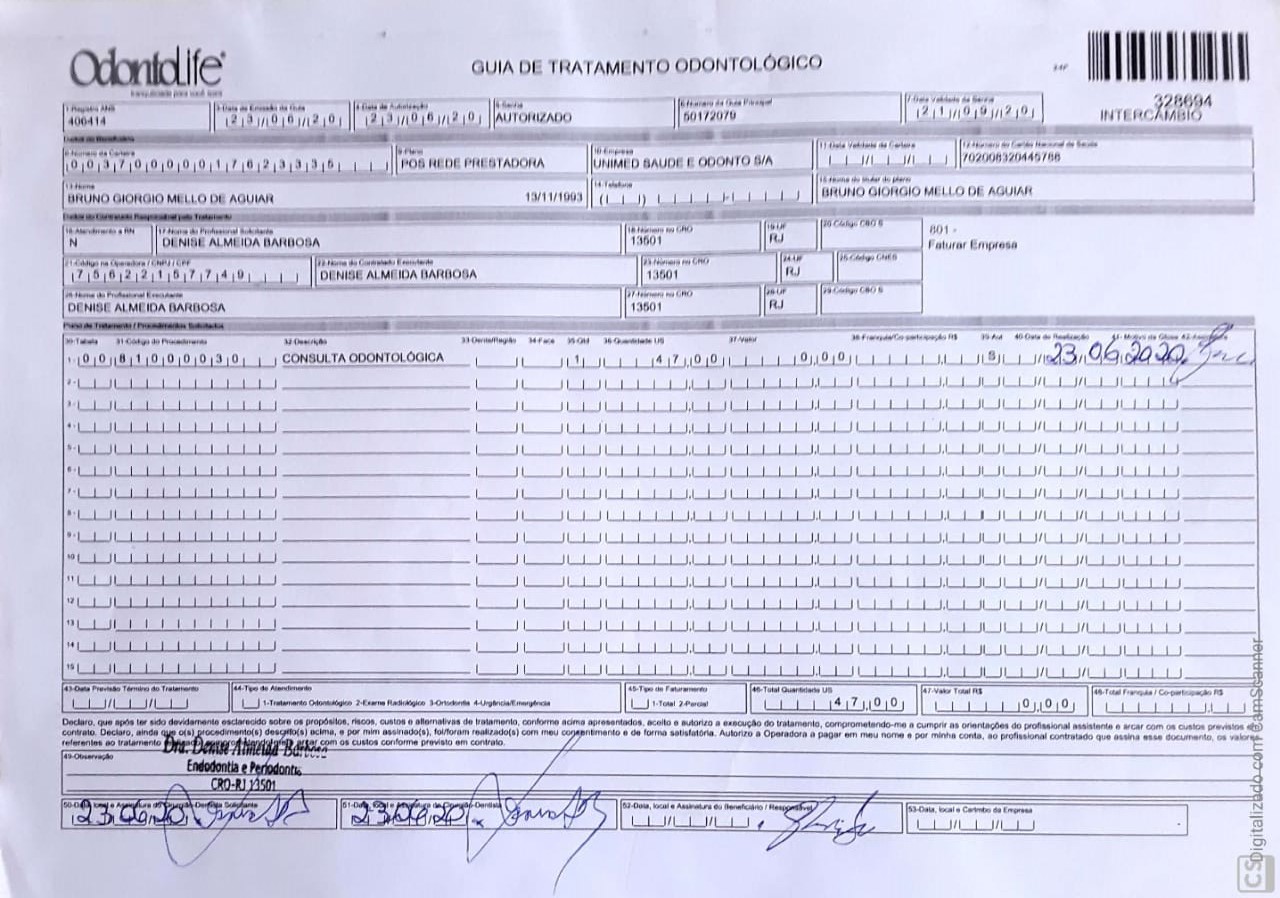 OdontoLife®
tranquilidade para você sorrir
GUIA DE TRATAMENTO ODONTOLÓGICO
328694
INTERCÂMBIO
1-Registro ANS
400414
3-Data de Emissão da Guia
23/06/20
4-Data de Autorização
23/06/20
5-Senha
AUTORIZADO
6-Número da Guia Principal
50172079
7-Data Validade da Senha
21/09/20
Dados do Beneficiário
8-Número da Carteira
00370000017623335
9-Plano
POS REDE PRESTADORA
10-Empresa
UNIMED SAUDE E ODONTO S/A
11-Data Validade da Carteira
12-Número do Cartão Nacional de Saúde
702008320445766
13-Nome
BRUNO GIORGIO MELLO DE AGUIAR 13/11/1993
14-Telefone
15-Nome do titular do plano
BRUNO GIORGIO MELLO DE AGUIAR
Dados do Contratado Responsável pelo Tratamento
16-Atendimento a RN
N
17-Nome do Profissional Solicitante
DENISE ALMEIDA BARBOSA
18-Número no CRO
13501
19-UF
RJ
20-Código CBO S
801 -
Faturar Empresa
21-Código na Operadora / CNPJ / CPF
75622157749
22-Nome do Contratado Executante
DENISE ALMEIDA BARBOSA
23-Número no CRO
13501
24-UF
RJ
25-Código CNES
26-Nome do Profissional Executante
DENISE ALMEIDA BARBOSA
27-Número no CRO
13501
28-UF
RJ
29-Código CBO S
Plano de Tratamento / Procedimentos Solicitados
30-Tabela 31-Código do Procedimento 32-Descrição 33-Dente/Região 34-Face 35-Qtd 36-Quantidade US 37-Valor 38-Franquia/Co-participação R$ 39-Aut 40-Data de Realização 41-Motivo da Glosa 42-Assinatura
1- 00 81000030 CONSULTA ODONTOLÓGICA 1 47,00 0,00 S 23 06 2020
2-
3-
4-
5-
6-
7-
8-
9-
10
11
12
13
14
15
43-Data Previsão Término do Tratamento
44-Tipo de Atendimento
1-Tratamento Odontológico 2-Exame Radiológico 3-Ortodontia 4-Urgência/Emergência
45-Tipo de Faturamento
1-Total 2-Parcial
46-Total Quantidade US
47,00
47-Valor Total R$
0,00
48-Total Franquia / Co-participação R$
Declaro, que após ter sido devidamente esclarecido sobre os propósitos, riscos, custos e alternativas de tratamento, conforme acima apresentados, aceito e autorizo a execução do tratamento, comprometendo-me a cumprir as orientações do profissional assistente e arcar com os custos previstos em
contrato. Declaro, ainda que o(s) procedimento(s) descrito(s) acima, e por mim assinado(s), foi/foram realizado(s) com meu consentimento e de forma satisfatória. Autorizo a Operadora a pagar em meu nome e por minha conta, ao profissional contratado que assina esse documento, os valores
referentes ao tratamento arcar com os custos conforme previsto em contrato.
49-Observação
Dra. Denise Almeida Barbosa
Endodontia e Periodontia
CRO-RJ 13501
50-Data, local e Assinatura do Cirurgião-Dentista Solicitante
23 06 20
51-Data, local e Assinatura do Cirurgião-Dentista
23 06 20
52-Data, local e Assinatura do Beneficiário / Responsável
53-Data, local e Carimbo da Empresa
Digitalizado com CamScanner
CS